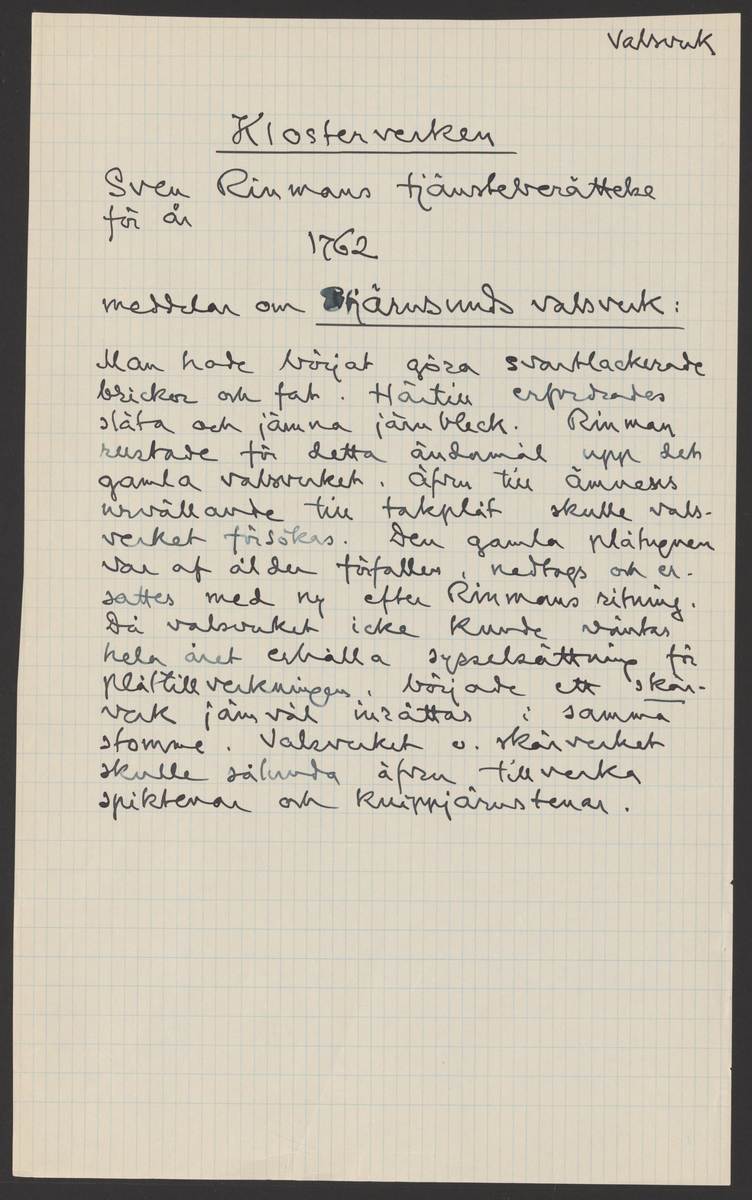 Valsverk
Klosterverken
Sven Rinmans tjänsteberättelse
för år
1762
meddelar om Stjärnsunds valsverk:
Man hade börjat göra svartlackerade
brickor och fat. Härtill erfordrades
släta och jämna järnbleck. Rinman
rustade för detta ändamål upp det
gamla valsverket. Äfven till ämnesis
urvällande till takplåt skulle vals-
verket försökas. Den gamla plåtugnen
var af ålder förfallen, nedtogs och er-
sattes med ny efter Rinmans ritning.
Då valsverket icke kunde väntas
hela året erhålla sysselsättning för
plåttillverkningen, började ett skär-
verk jämväl inrättas i samma
stomme. Valsverket o. skärverket
skulle sålunda äfven tillverka
spiktenar och knippjärnstenar.